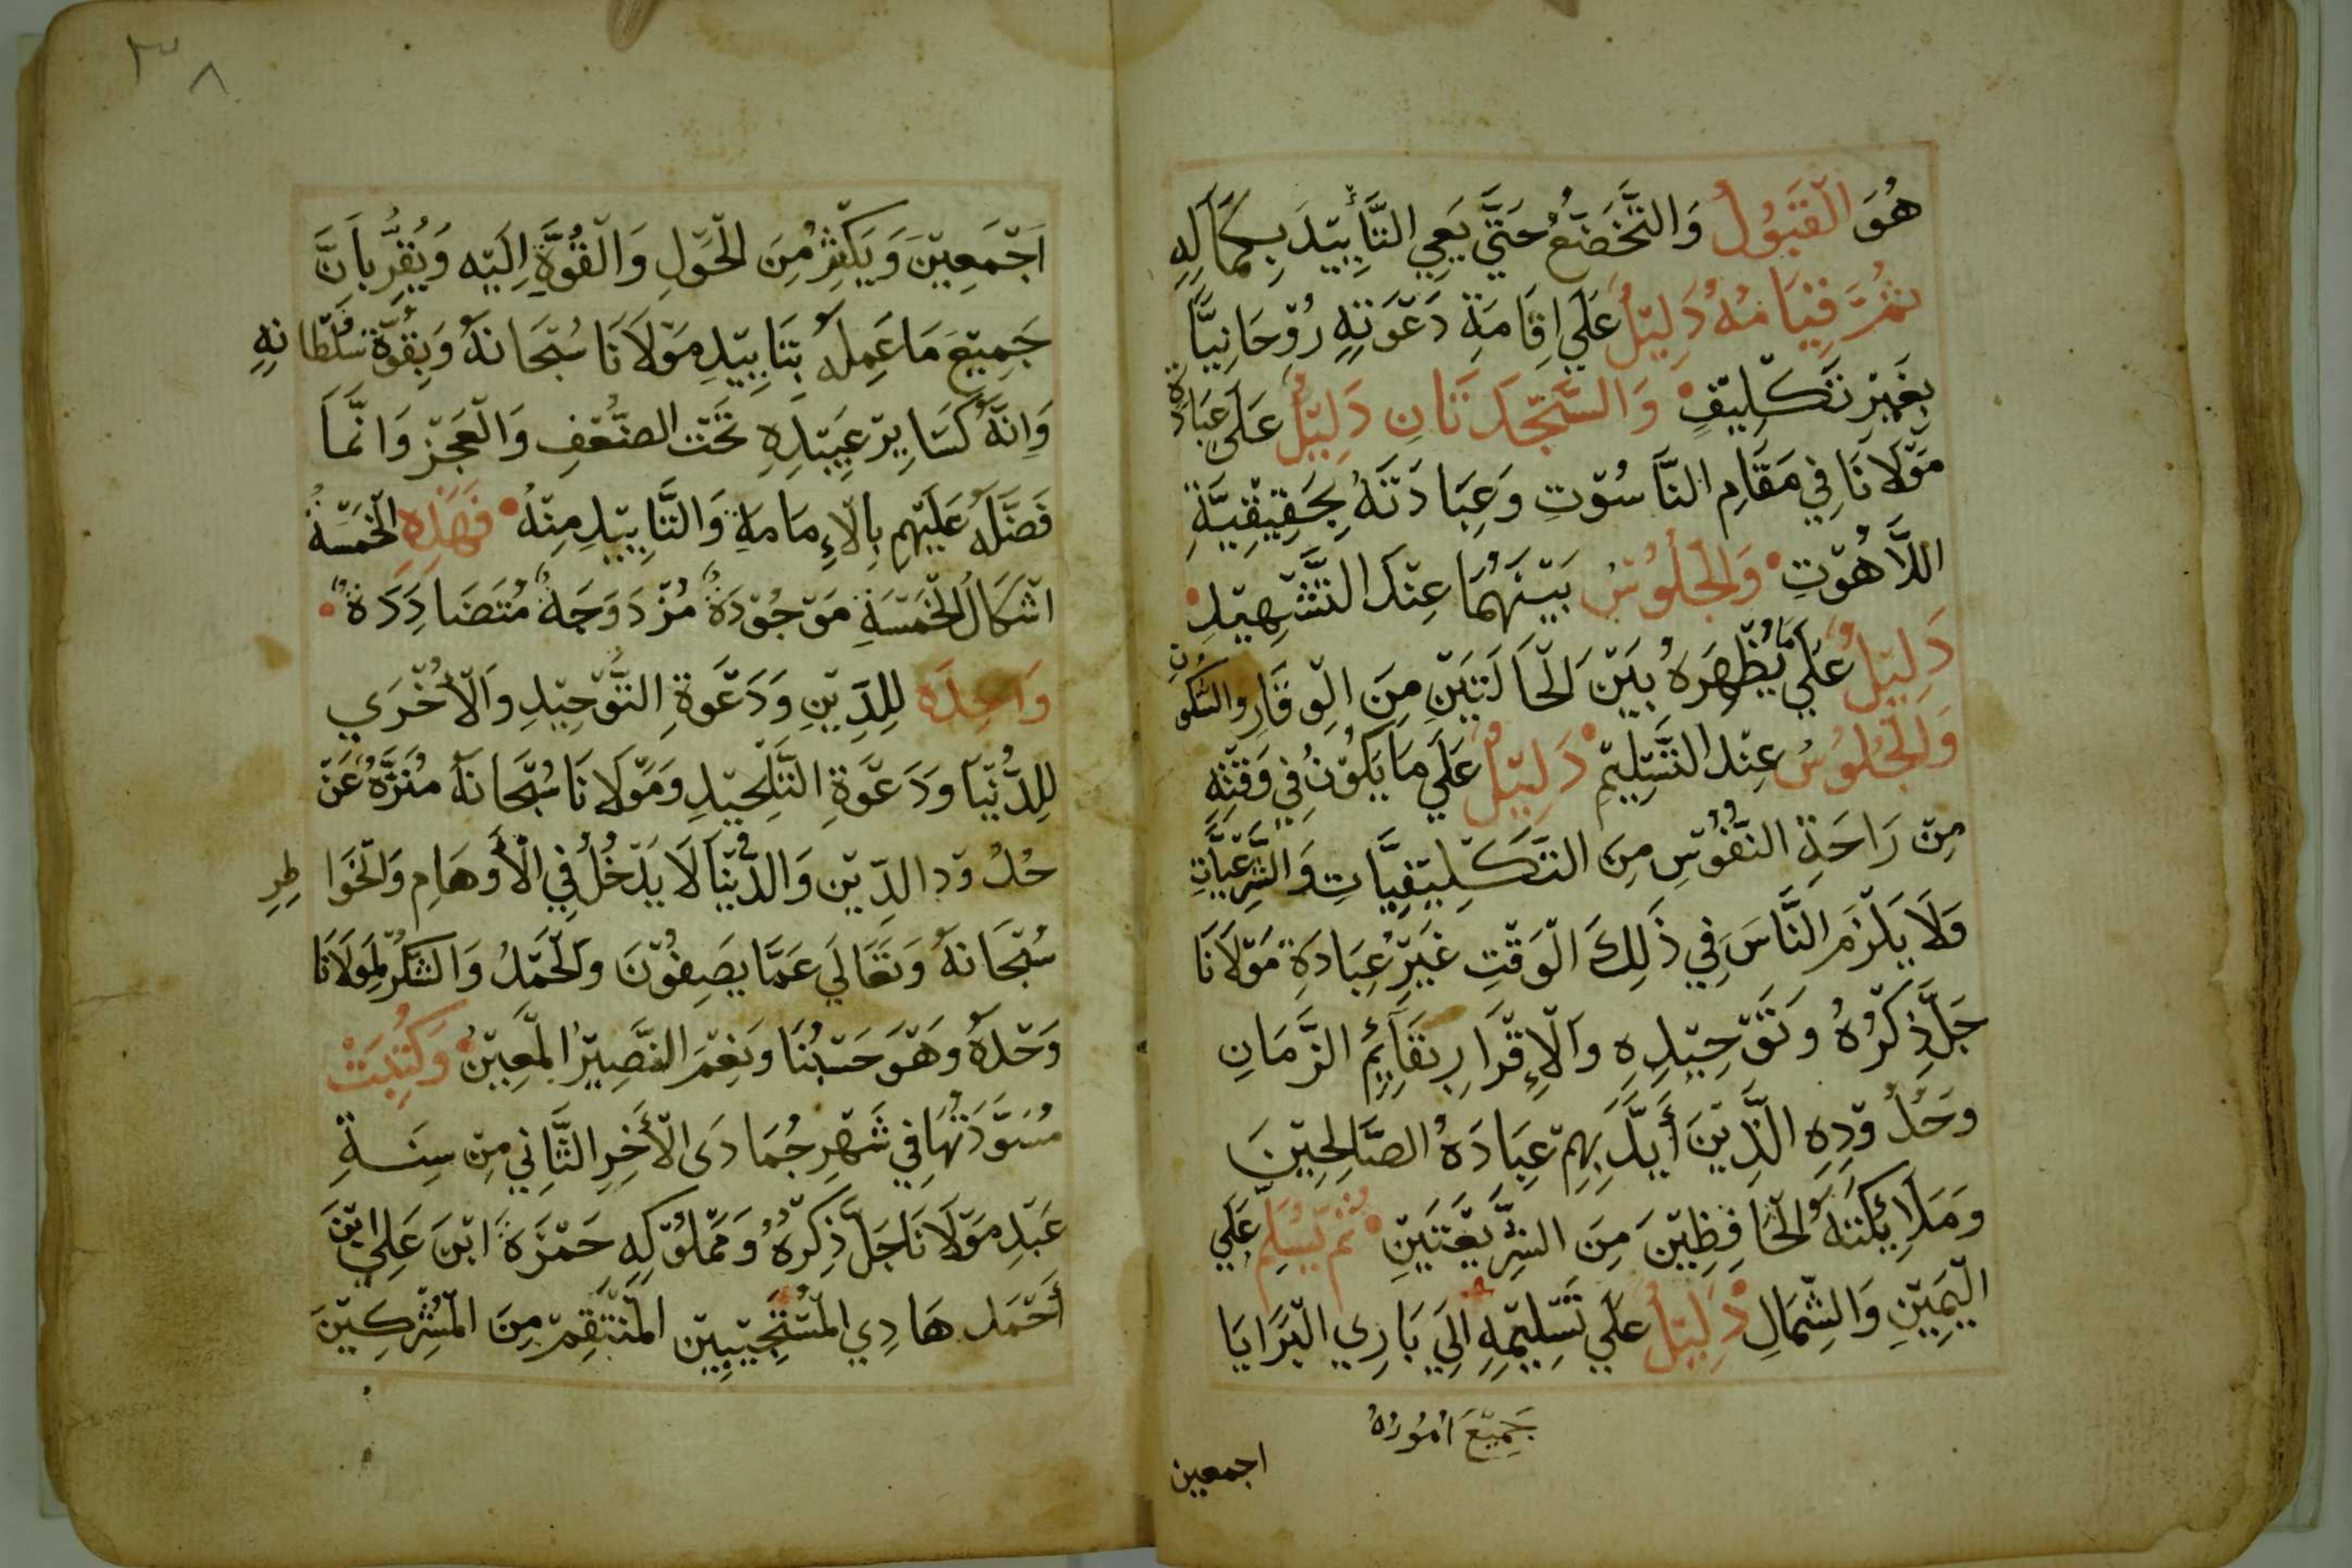 هُوَ الْقَبُولُ وَالتَّخَضُّعُ حَتَّي يَعِي التَّأْيِيْدَ بِكَمَالِهِ
ثُمَّ قِيَامُهُ دَلِيْلٌ عَلَي اِقَامَةِ دَعْوَتِهِ رُوْحَانِيًّا
بِغَيْرِ تَكْلِيْفٍ وَالسَّجْدَتَانِ دَلِيْلٌ عَلَى عِبَادَةِ
مَوْلَانَا فِي مَقَامِ النَّاسُوْتِ وَعِبَادَتَهُ بِحَقِيْقِيَّةِ
اللَّاهُوْتِ وَالْجُلُوْسُ بَيْنَهُمَا عِنْدَ التَّشْهِيْدِ
دَلِيْلٌ عَلَي مَا يُظْهِرَهُ بَيْنَ الْحَالَتَيْنِ مِنَ الْوِقَارِ وَالسُّكُوْنِ
وَالْجُلُوسُ عِنْدَ التَّسْلِيْمِ دَلِيْلٌ عَلَي مَا يَكُوْنُ فِي وَقْتِهِ
مِنْ رَاحَةِ النُّفُوْسِ مِنَ التَّكْلِيْفِيَّاتِ وَالشَّرْعِيَّاتِ
وَلَا يَلْزَمَ النَّاسَ فِي ذَلِكَ الْوَقْتِ غَيْرَ عِبَادَةِ مَوْلَانَا
جَلَّ ذِكْرُهُ وَتَوْحِيْدِهِ وَالْإِقْرَارِ بِقَائِمِ الزَّمَانِ
وَحُدُوْدِهِ الَّذِيْنَ أَيَّدَ بِهِمْ عِبَادَهُ الصَّالِحِيْنَ
وَمَلَائِكَتَهُ الْحَافِظِيْنَ مِنَ الشَّرِيْعَتَيْنِ ثُمَّ يُسَلِّمُ عَلَي
الْيَمِيْنِ وَالشِّمَالِ دَلِيْلٌ عَلَي تَسْلِيْمِهِ اِلَي بَارِي الْبَرَايَا
جَمِيْعَ اُمُوْرِهُ
اجمعين
٣٨
اَجْمَعِيْنَ وَيَكْثِرُ مِنَ الْحَوْلِ وَالْقُوَّةِ اِلَيْهِ وَيُقِرُّ بِاَنَّ
جَمِيْعَ مَا عَمِلَهُ بِتَايِيْدِ مَوْلَانَا سُبْحَانَهُ وَبِقُوَّةِ سُلْطَانِهِ
وَاِنَّهُ كَسَايِرِ عَبِيْدِهِ تَحْتَ الضُّعْفِ وَالْعَجْزِ وَانَّمَا
فَضَّلَهُ عَلَيْهِم بِالْإِمَامَةِ وَالتَّايِيْدِ مِنْهُ فَهَذِهِ الْخَمْسَةُ
اشْكَالُ الْخَمْسَةِ مَوْجُوْدَةٌ مُزْدَوَجَةٌ مُتَضَادِدَةٌ
وَاحِدَه لِلدِّيْنِ وَدَعْوَةِ التَّوْحِيْدِ وَالْأُخْرَي
لِلدُّنْيَا وَدَعْوَةِ التَّلْحِيْدِ وَمَوْلَانَا سُبْحَانَهُ مُنَزَّهٌ عَنْ
حُدُوْدِ الدِّيْنِ وَالدُّنْيَا لَا يَدْخُلُ فِي الْأَوْهَامِ وَالْخَوَاطِرِ
سُبْحَانَهُ وَتَعَالَي عَمَّا يَصِفُوْنَ وَالْحَمْدُ وَالشُّكْرُ لِمَوْلَانَا
وَحْدَهُ وَهْوَ حَسْبُنَا وَنِعْمَ النَّصِيْرُ الْمُعِيْنُ وَكُتِبَتْ
مُسَوَّدَتُهَا فِي شَهْرِ جُمَادَى الْأَخِرِ الثَّانِي مِنْ سِنَةِ
عَبْدِ مَوْلَانَا جَلَّ ذِكْرُهُ وَمَمْلُوْكِهِ حَمْزَةَ ابْنَ عَلِي ابْنَ
أَحْمَد هَادِي الْمُسْتَجِيْبِيْن الْمُنْتَقِمْ مِنَ الْمُشْرِكِيْنَ